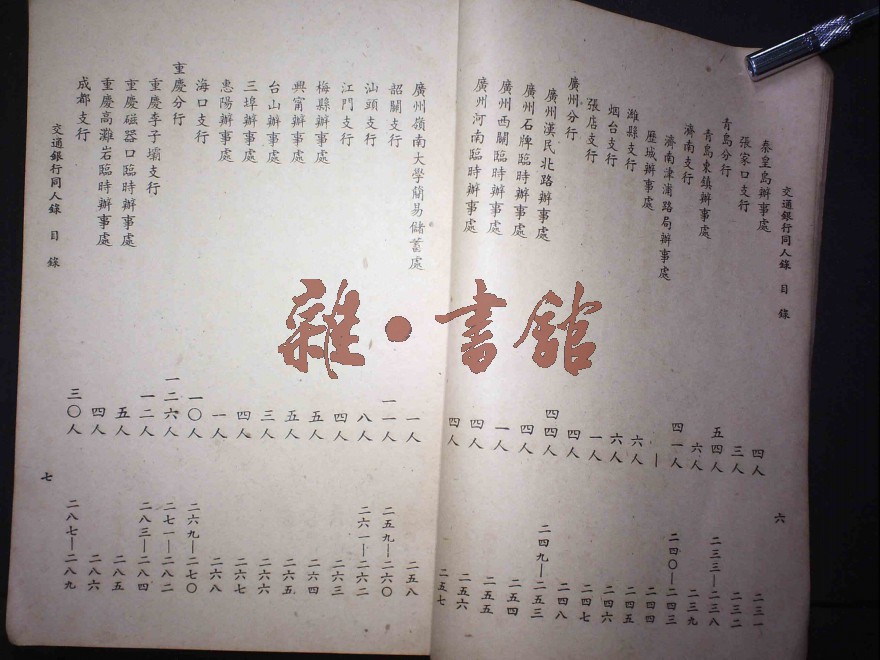 交通銀行同人錄 目錄 六
秦皇島辦事處 四人 二三一
張家口支行 三人 二三二
青島分行 五四人 二三三—二三八
青島東鎮辦事處 六人 二三九
濟南支行 四一人 二四〇—二四三
濟南津浦路局辦事處 — 二四四
歷城辦事處 六人 二四五
濰縣支行 六人 二四六
烟台支行 一人 二四七
張店支行 四人 二四八
廣州分行 四四人 二四九—二五三
廣州漢民北路辦事處 四人 二五四
廣州石牌臨時辦事處 一人 二五五
廣州西關臨時辦事處 四人 二五六
廣州河南臨時辦事處 四人 二五七
廣州嶺南大學簡易儲蓄處 一人 二五八
韶關支行 一一人 二五九—二六〇
汕頭支行 八人 二六一—二六二
江門支行 四人 二六三
梅縣辦事處 五人 二六四
興甯辦事處 五人 二六五
台山辦事處 三人 二六六
三埠辦事處 四人 二六七
惠陽辦事處 一人 二六八
海口支行 一〇人 二六九—二七〇
重慶分行 一二六人 二七一—二八二
重慶李子壩支行 一二人 二八三—二八四
重慶磁器口臨時辦事處 五人 二八五
重慶高灘岩臨時辦事處 四人 二八六
成都支行 三〇人 二八七—二八九
交通銀行同人錄 目錄 七
雜·書館